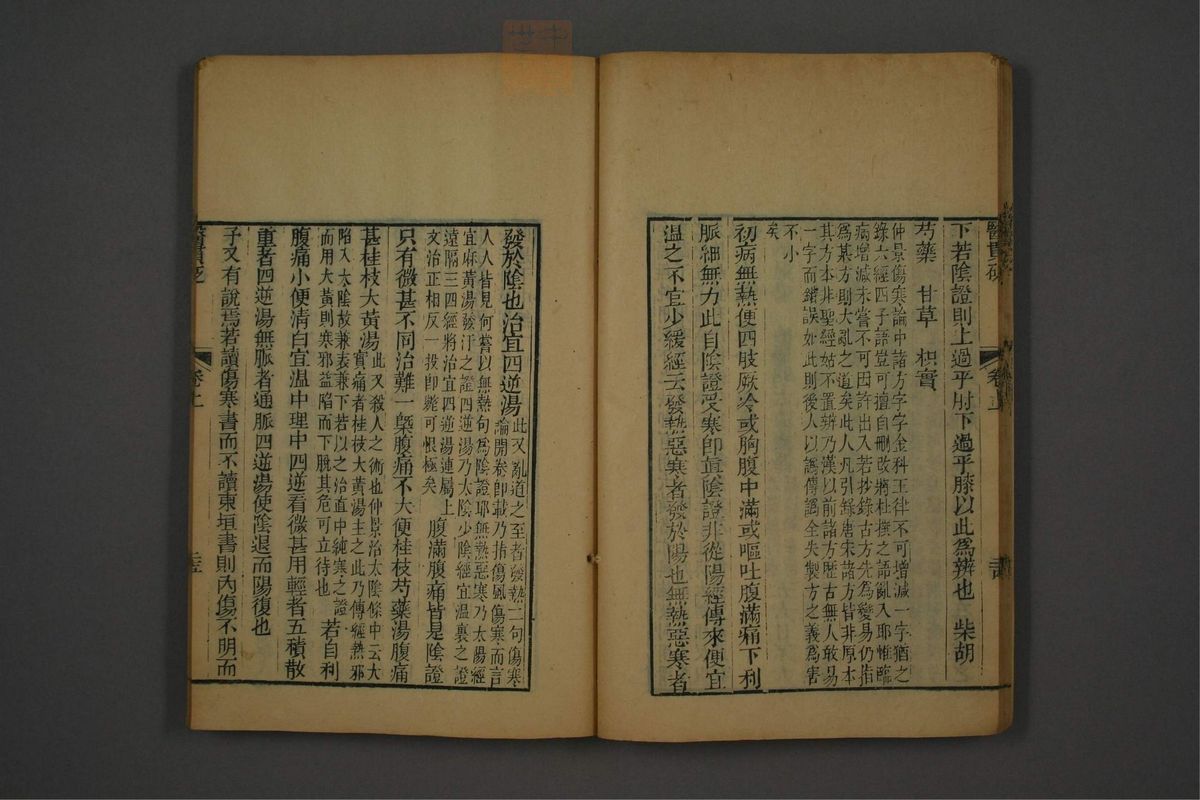 下若陰證則上過乎肘下過乎膝以此爲辨也　柴胡
芍藥　甘草　枳實
仲景傷寒論中諸方字字金科玉律不可增減一字猶之
錄六經四子語豈可擅自刪改將杜撰之語亂入耶惟臨
病增減未嘗不可因許出入若抄錄古方先爲變易仍指
爲某方則大亂之道矣此人凡引錄唐宋諸方皆非原本
其方本非聖經姑不置辨乃漢以前諸方歷古無人敢易
一字而錯誤如此則後人以譌傳譌全失製方之義爲害
不小
矣
初病無熱便四肢厥冷或胸腹中滿或嘔吐腹滿痛下利
脈細無力此自陰證受寒即眞陰證非從陽經傳來便宜
温之不宜少緩經云發熱惡寒者發於陽也無熱惡寒者
醫貫砭
卷上
發於陰也治宜四逆湯
此又亂道之至者發熱二句傷寒
論開卷即載乃指傷風傷寒而言
人人皆見何嘗以無熱句爲陰證耶無熱惡寒乃太陽經
宜麻黃湯發汗之證四逆湯乃太陰少陰經宜温裏之證
遠隔三四經將治宜四逆湯連屬上
文治正相反一投即斃可恨極矣
腹滿腹痛皆是陰證
只有微甚不同治難一槩腹痛不大便桂枝芍藥湯腹痛
甚桂枝大黃湯
此又殺人之術也仲景治太陰條中云大
實痛者桂枝大黃湯主之此乃傳經熱邪
陷入太陰故兼表兼下若以之治直中純寒之證
而用大黃則寒邪益陷而下脫其危可立待也
若自利
腹痛小便清白宜温中理中四逆看微甚用輕者五積散
重者四逆湯無脈者通脈四逆湯使陰退而陽復也
子又有說焉若讀傷寒書而不讀東垣書則內傷不明而
醫貫砭
卷上